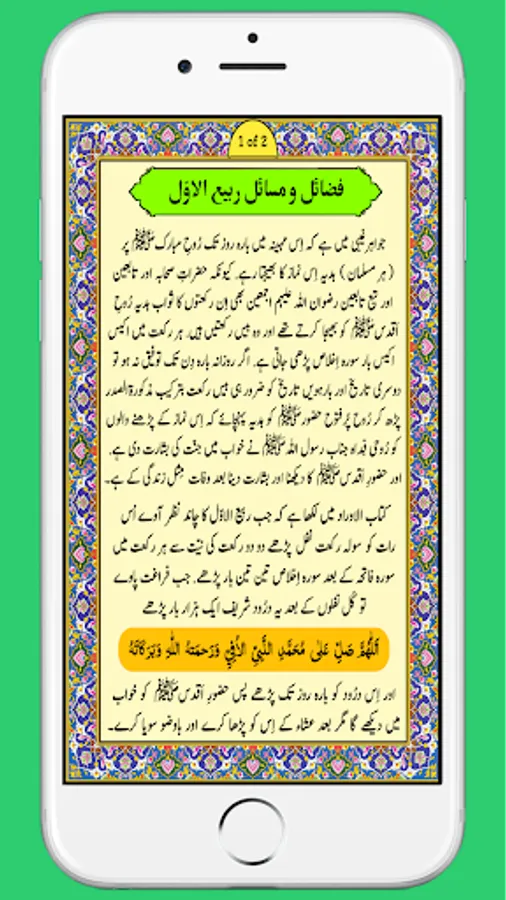 1 of 2
فضائل و مسائل ربیع الاوّل
جواہر غیبی میں ہے کہ اِس مہینہ میں بارہ روز تک رُوحِ مبارک ﷺ پر
(ہر مسلمان) ہدیہ اِس نماز کا بھیجتا رہے۔ کیونکہ حضراتِ صحابہ اور تابعین
اور تبع تابعین رضوان اللہ علیہم اجمعین بھی اِن رکعتوں کا ثواب ہدیہ رُوحِ
اقدس ﷺ کو بھیجا کرتے تھے اور وہ بیس رکعتیں ہیں۔ ہر رکعت میں اکیس
اکیس بار سورہ اِخلاص پڑھی جاتی ہے۔ اگر روزانہ بارہ دِن تک توفیق نہ ہو تو
دوسری تاریخ اور بارھویں تاریخ کو ضرور ہی بیس رکعت بترکیب مذکورۃ الصدر
پڑھ کر رُوحِ پرفتوح حضور ﷺ کو ہدیہ پہنچائے کہ اِس نماز کے پڑھنے والوں
کو رُوحی فِداہ جناب رسول اللہ ﷺ نے خواب میں جنّت کی بشارت دی ہے۔
اور حضورِ اقدس ﷺ کا دیکھنا اور بشارت دینا بعد وفات مِثل زندگی کے ہے۔
کتاب الاوراد میں لکھا ہے کہ جب ربیع الاوّل کا چاند نظر آوے اُس
رات کو سولہ رکعت نفل پڑھے دو دو رکعت کی نیّت سے ہر رکعت میں
سورہ فاتحہ کے بعد سورہ اِخلاص تین تین بار پڑھے۔ جب فراغت پاوے
تو کُل نفلوں کے بعد یہ درُود شریف ایک ہزار بار پڑھے
اَللّٰهُمَّ صَلِّ عَلٰى مُحَمَّدِ النَّبِيِّ الْأُمِّيِّ وَرَحْمَتهُ اللّٰهِ وَبَرَكَاتَهُ
اور اِس درُود کو بارہ روز تک پڑھے پس حضورِ اقدس ﷺ کو خواب
میں دیکھے گا مگر بعد عشاء کے اِس کو پڑھا کرے اور باوضو سویا کرے۔